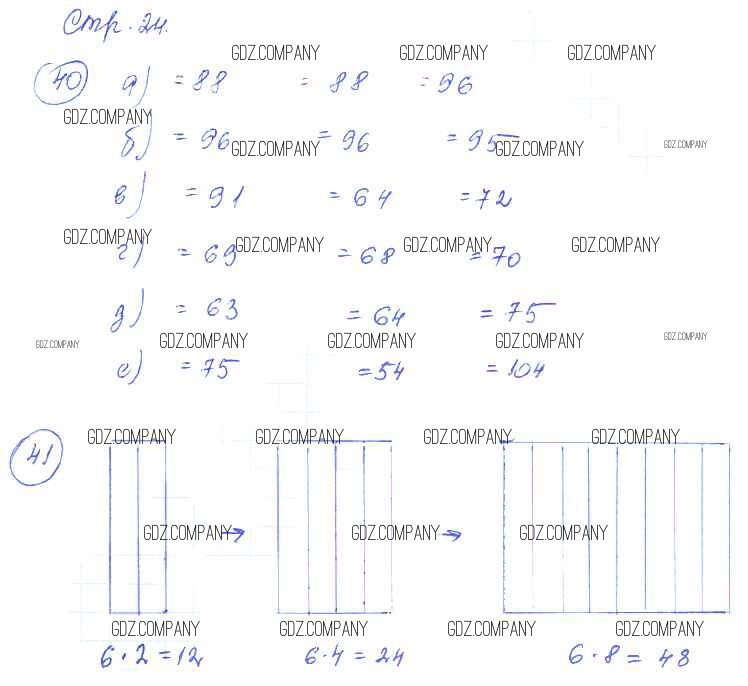 Стр. 24.
GDZ.COMPANY GDZ.COMPANY GDZ.COMPANY
40 а) = 88 = 88 = 96
GDZ.COMPANY
б) = 96 = 96 = 95
GDZ.COMPANY GDZ.COMPANY GDZ.COMPANY
в) = 91 = 64 = 72
GDZ.COMPANY GDZ.COMPANY GDZ.COMPANY GDZ.COMPANY
г) = 69 = 68 = 70
д) = 63 = 64 = 75
GDZ.COMPANY GDZ.COMPANY GDZ.COMPANY GDZ.COMPANY GDZ.COMPANY
е) = 75 = 54 = 104
GDZ.COMPANY GDZ.COMPANY GDZ.COMPANY GDZ.COMPANY
41
GDZ.COMPANY GDZ.COMPANY GDZ.COMPANY
GDZ.COMPANY GDZ.COMPANY GDZ.COMPANY GDZ.COMPANY
6 · 2 = 12 6 · 4 = 24 6 · 8 = 48